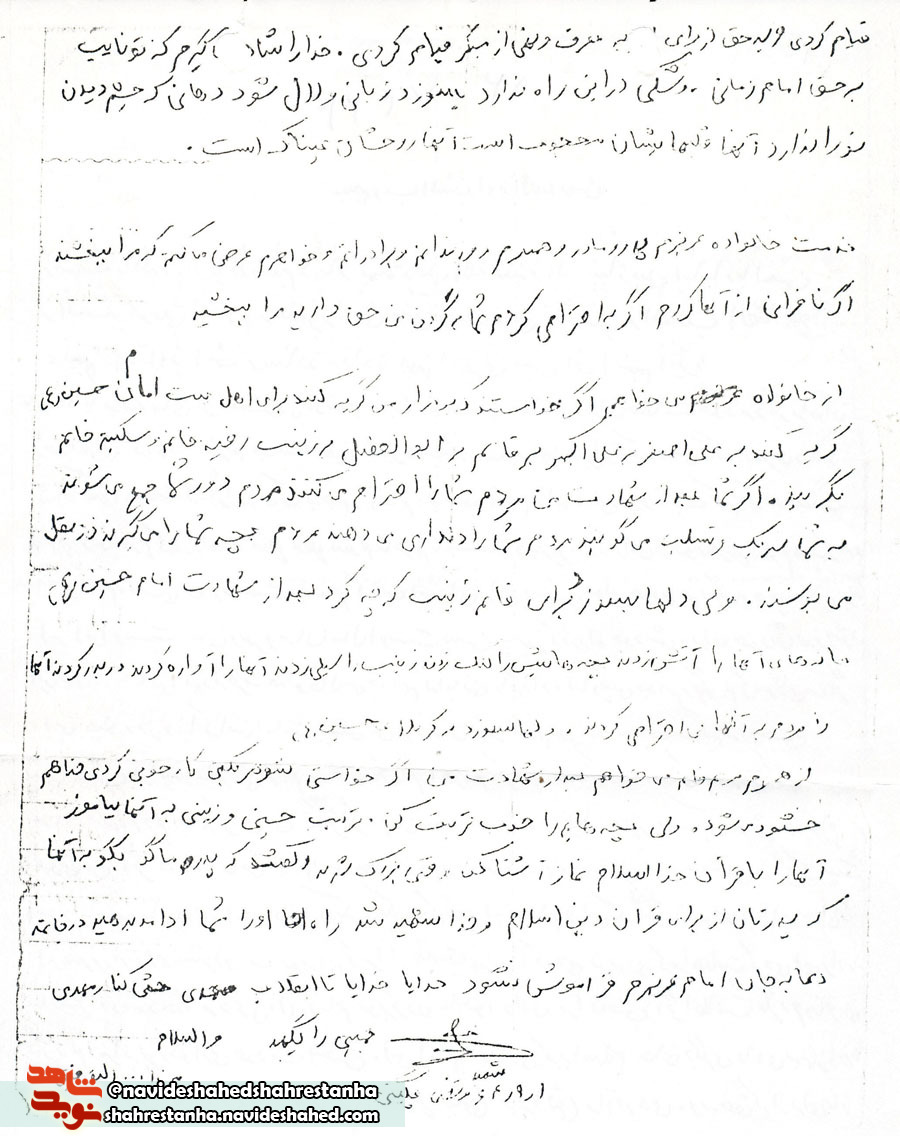 قیام کردی و به حق از برای به معرف و نهی از منکر قیام کردی . خدا را شاهد میگیرم که تو نایب
بر حق امام زمانی . و شکی در این راه ندارد بسوزد زبانی و لال شود دهانی که چشم دیدن
نور را ندارد آنها قلبهایشان معیوب است آنها روحشان عیبناک است .
خدمت خانواده عزیزم پدر و مادر و همسرم و فرزندانم و برادرانم و خواهرم عرض میکنم که مرا ببخشند
اگر نافرمانی از آنها کردم اگر بی احترامی کردم شما به گردن من حق دارید مرا ببخشید
از خانواده عزیزم می خواهم اگر خواستند که بر مزار من گریه کنند برای اهل بیت امام حسین (ع)
گریه کنند بر علی اصغر بر علی اکبر بر قاسم بر ابوالفضل بر زینب رقیه خانم و سکینه خانم
بگریند . اگر شما بعد از شهادت من مردم شما را احترام می کنند مردم دور شما جمع می شوند
به شما تبریک و تسلیت می گویند مردم شما را دلداری می دهند مردم بچه شما را می گیرند در بغل
می بوسند . ولی دلها بسوز برای خانم زینب که چه کرد بعد از شهادت امام حسین (ع)
خانه های آنها را آتش زدند بچه هایش را کتک زدن زینب را سیلی زدند آنها را آواره کردند دربدر کردند آنها
را مردم به آنها بی احترامی کردند . دلها بسوزد بر کربلا حسین (ع)
از همسرم می خواهم بعد از شهادت من اگر خواستی شوهر بکنی کار خوبی کردی خدا هم
خشنود می شود . ولی بچه هایم را خوب تربیت کن . تربیت حسینی و زینبی به آنها بیاموز
آنها را با قرآن خدا اسلام نماز آشنا کن . وقتی بزرگ شدند و گفتند که پدر ما کو بگو به آنها
که پدرتان از برای قرآن دین اسلام و خدا شهید شد راه او را شما ادامه بدهید در خاتمه
دعا به جان امام عزیزم فراموش نشود خدایا خدایا تا انقلاب مهدی حتی کنار مهدی
خمینی را نگهدار والسلام
@navideshahedshahrestanha
shahrestanha.navideshahed.com
نوید شاهد